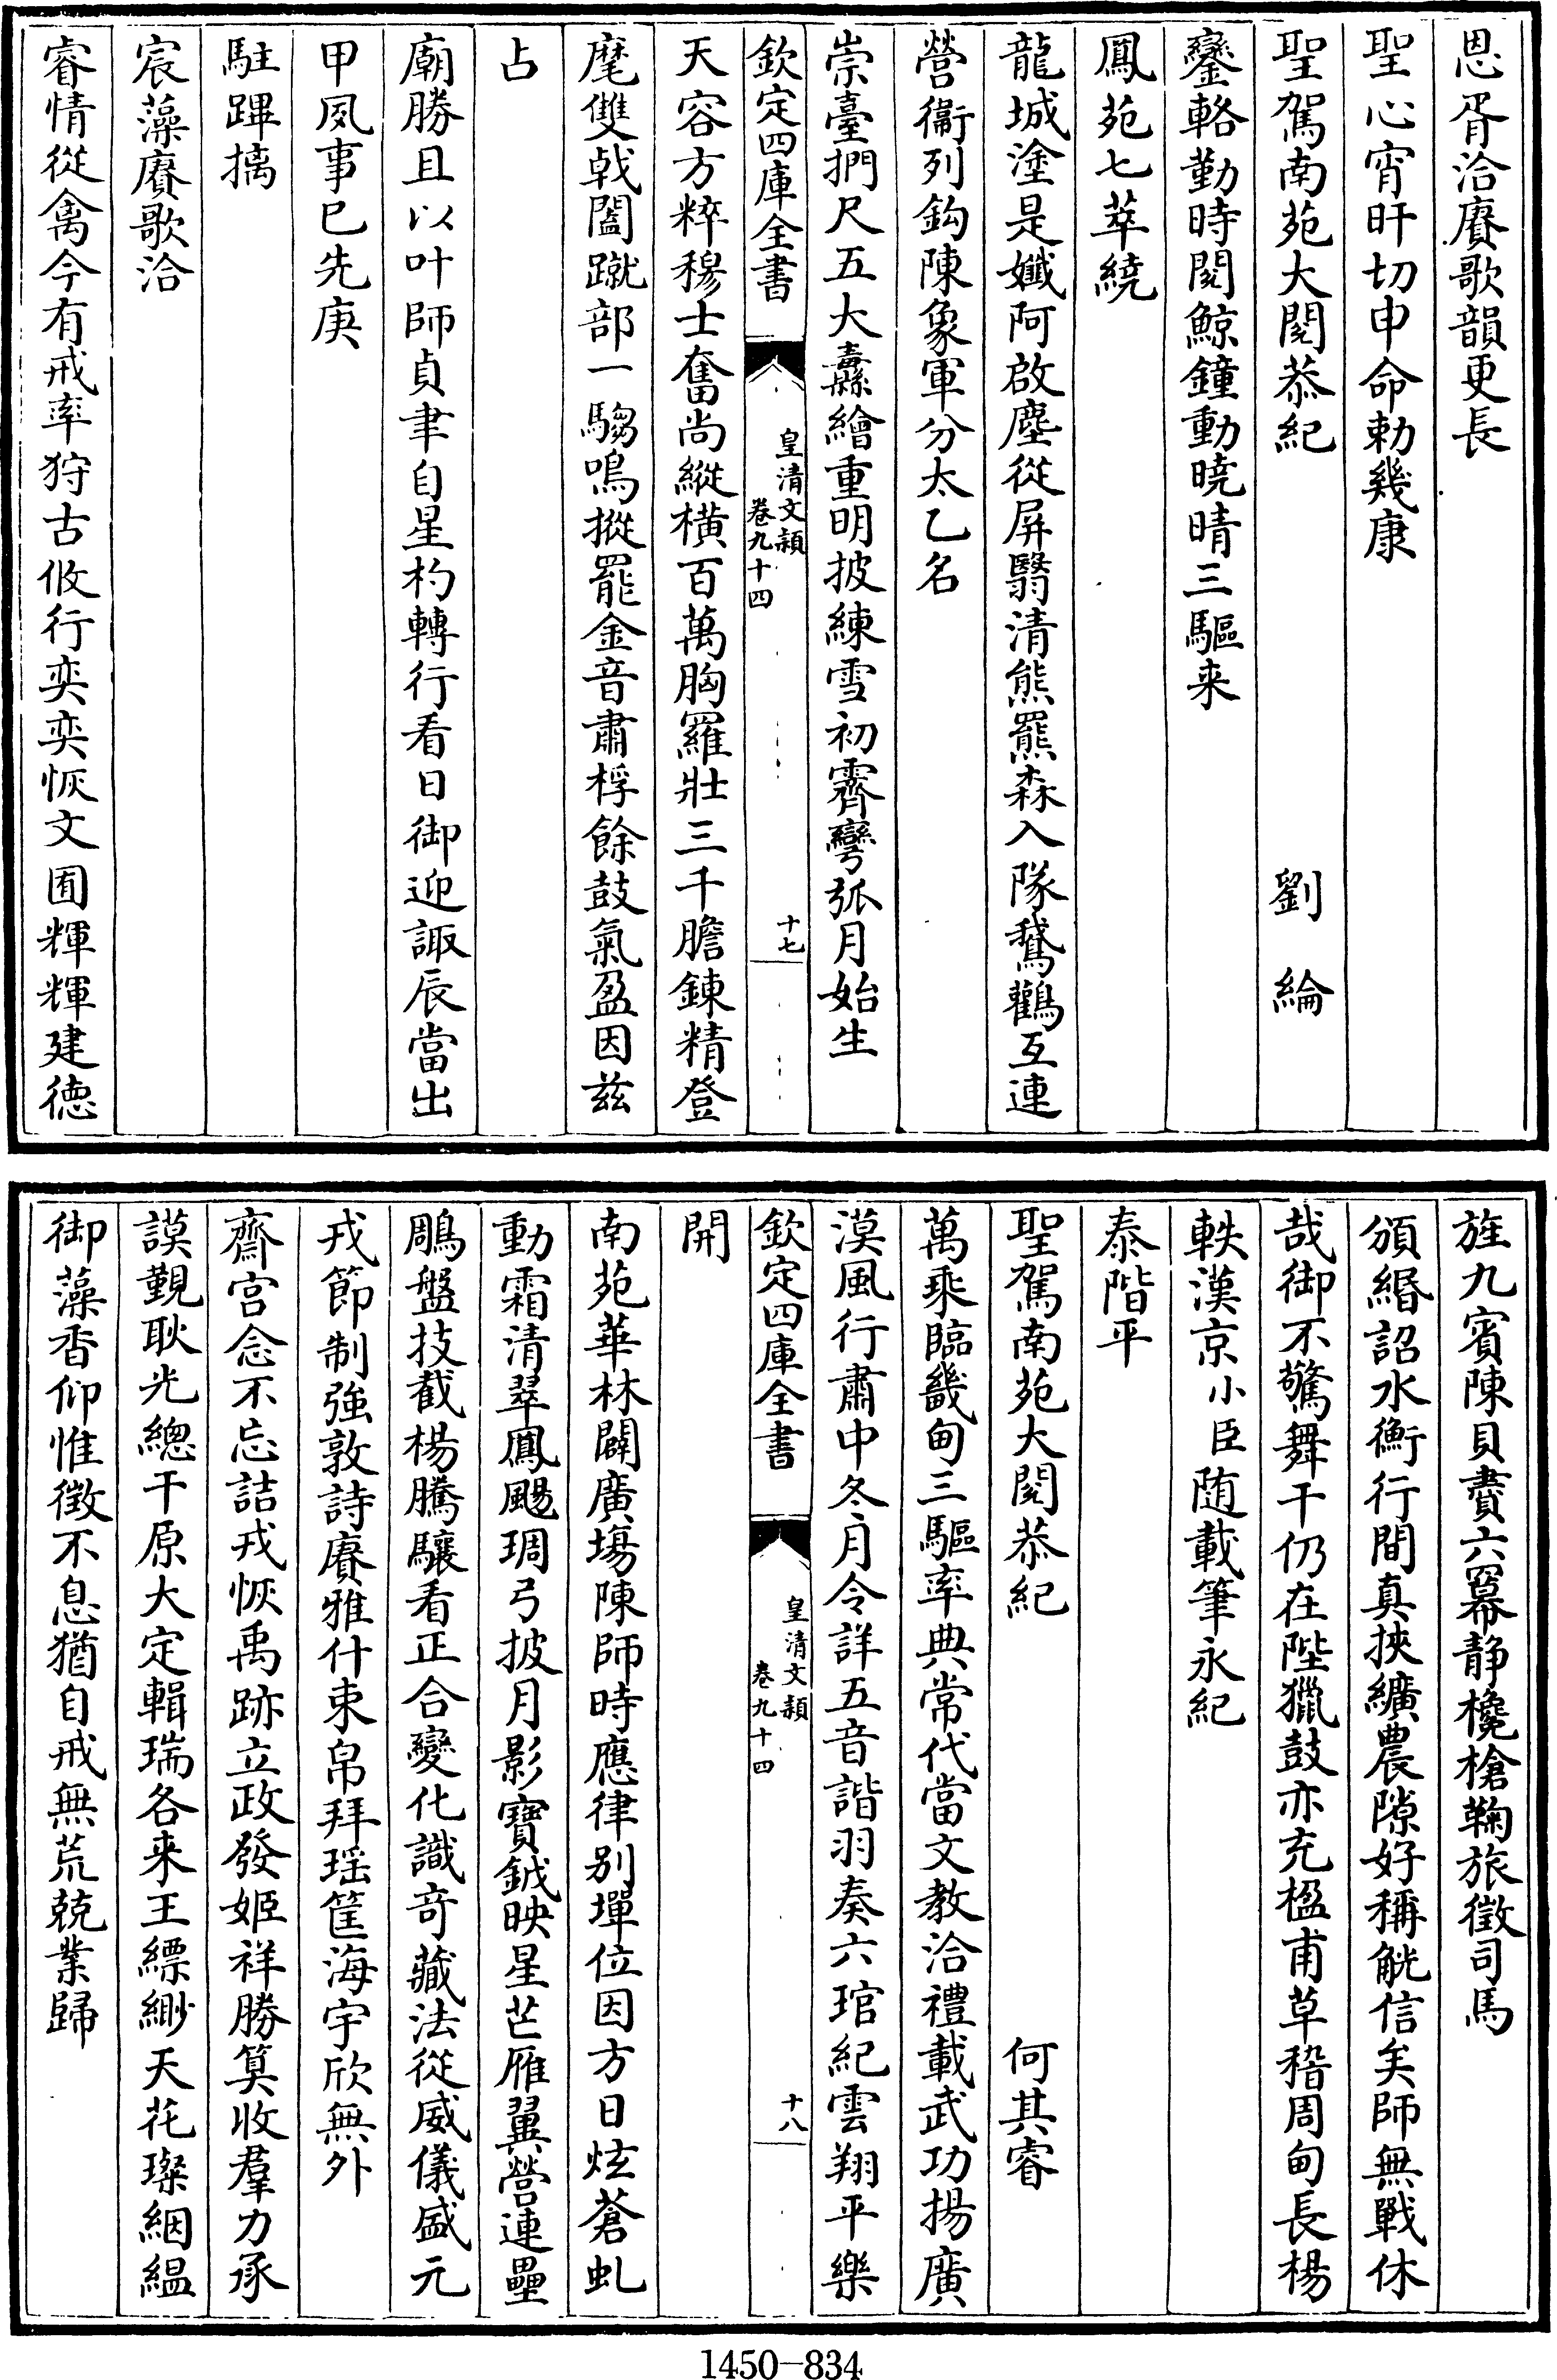 恩胥洽賡歌韻更長
聖心宵旰切申命勅幾康
聖駕南苑大閱恭紀 劉綸
鑾輅勤時閱鯨鐘動曉晴三驅来
鳳苑七萃繞
龍城塗是孅阿啟塵從屏翳清熊羆森入隊鵞鸛互連
營衞列鈎陳象軍分太乙名
崇臺捫尺五大纛繪重明披練雪初霽彎弧月始生
欽定四庫全書 皇清文穎 卷九十四 十七
天容方粹穆士奮尚縱橫百萬胸羅壯三千膽鍊精登
麾雙戟闔蹴部一騶鳴摐罷金音肅桴餘鼓氣盈因兹
占
廟勝且以叶師貞聿自星杓轉行看日御迎諏辰當出
甲夙事已先庚
駐蹕摛
宸藻賡歌洽
睿情從禽今有戒率狩古攸行奕奕恢文囿輝輝建德
旌九賓陳貝賮六幕静欃槍鞠旅徵司馬
頒緡詔水衡行間真挾纊農隙好稱觥信矣師無戰休
哉御不驚舞干仍在陛獵鼓亦充楹甫草稽周甸長楊
軼漢京小臣随載筆永紀
泰階平
聖駕南苑大閱恭紀 何其睿
萬乘臨畿甸三驅率典常代當文教洽禮載武功揚廣
漠風行肅中冬月令詳五音諧羽奏六琯紀雲翔平樂
欽定四庫全書 皇清文穎 卷九十四 十八
開
南苑華林闢廣塲陳師時應律别墠位因方日炫蒼虬
動霜清翠鳳颺琱弓披月影寶鉞映星芒雁翼營連壘
鵰盤技截楊騰驤看正合變化識奇藏法從威儀盛元
戎節制強敦詩賡雅什束帛拜瑶筐海宇欣無外
齋宫念不忘詰戎恢禹跡立政發姬祥勝算收羣力承
謨覲耿光總干原大定輯瑞各来王縹緲天花璨絪縕
御藻香仰惟徵不息猶自戒無荒兢業歸
1450-834